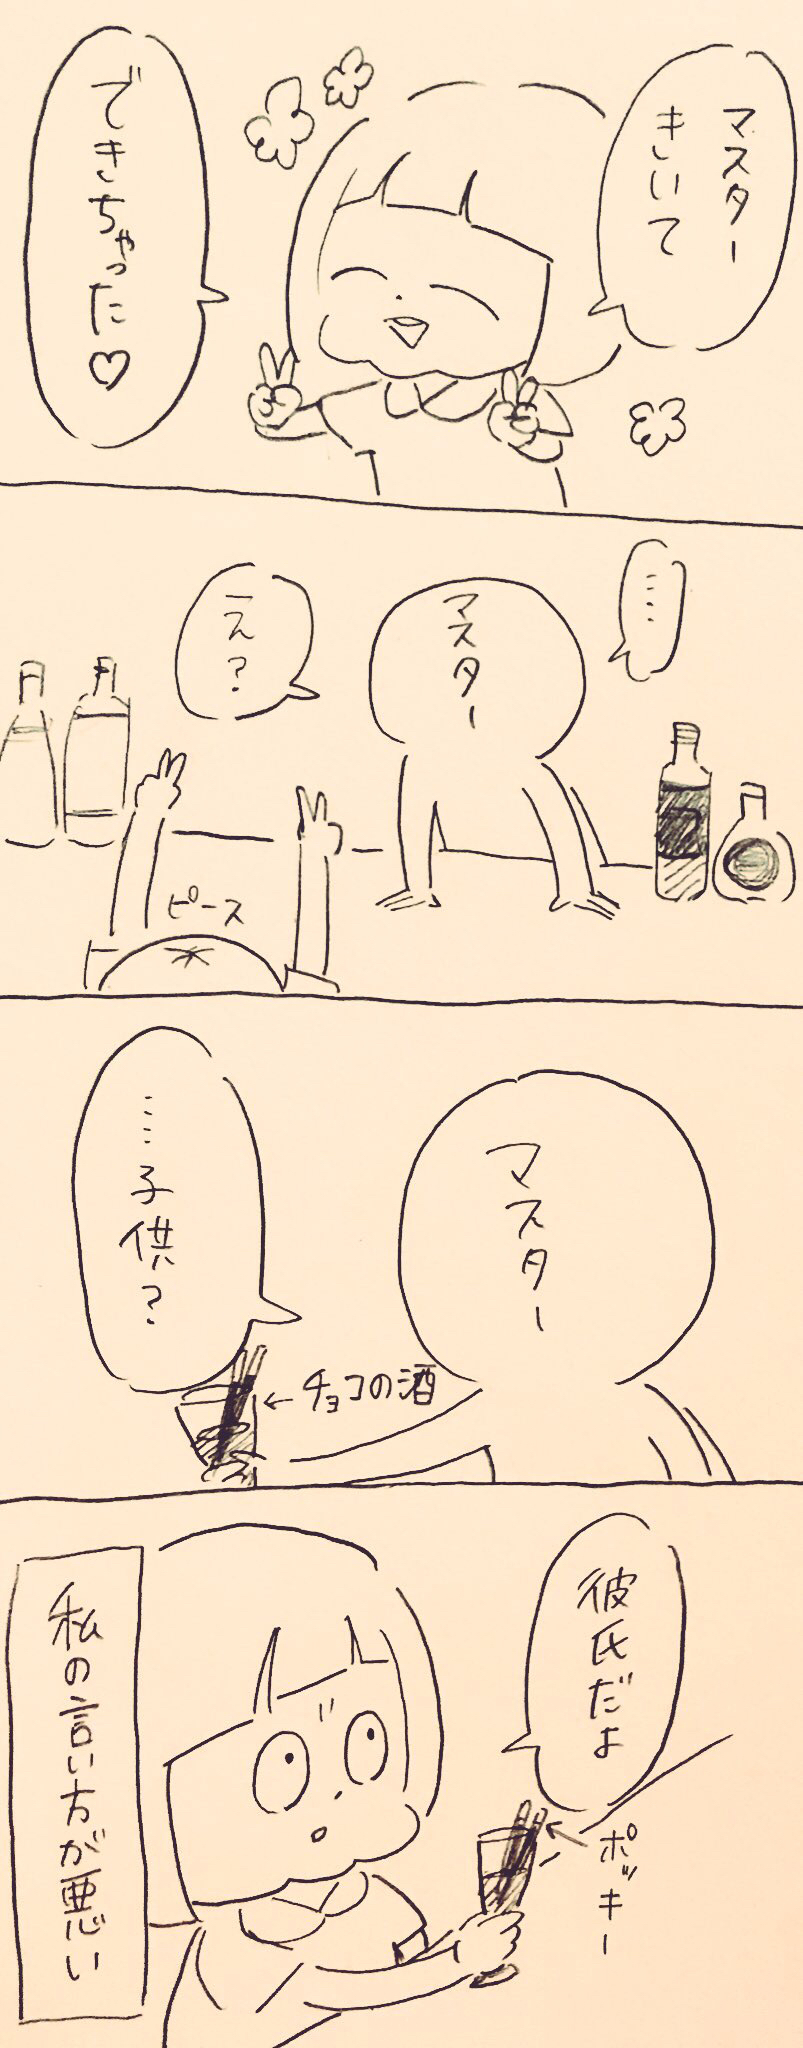 マスター
きいて
できちゃった♡
……
マスター
え?
ピース
マスター
……子供?
←チョコの酒
彼氏だよ
ポッキー
私の言い方が悪い